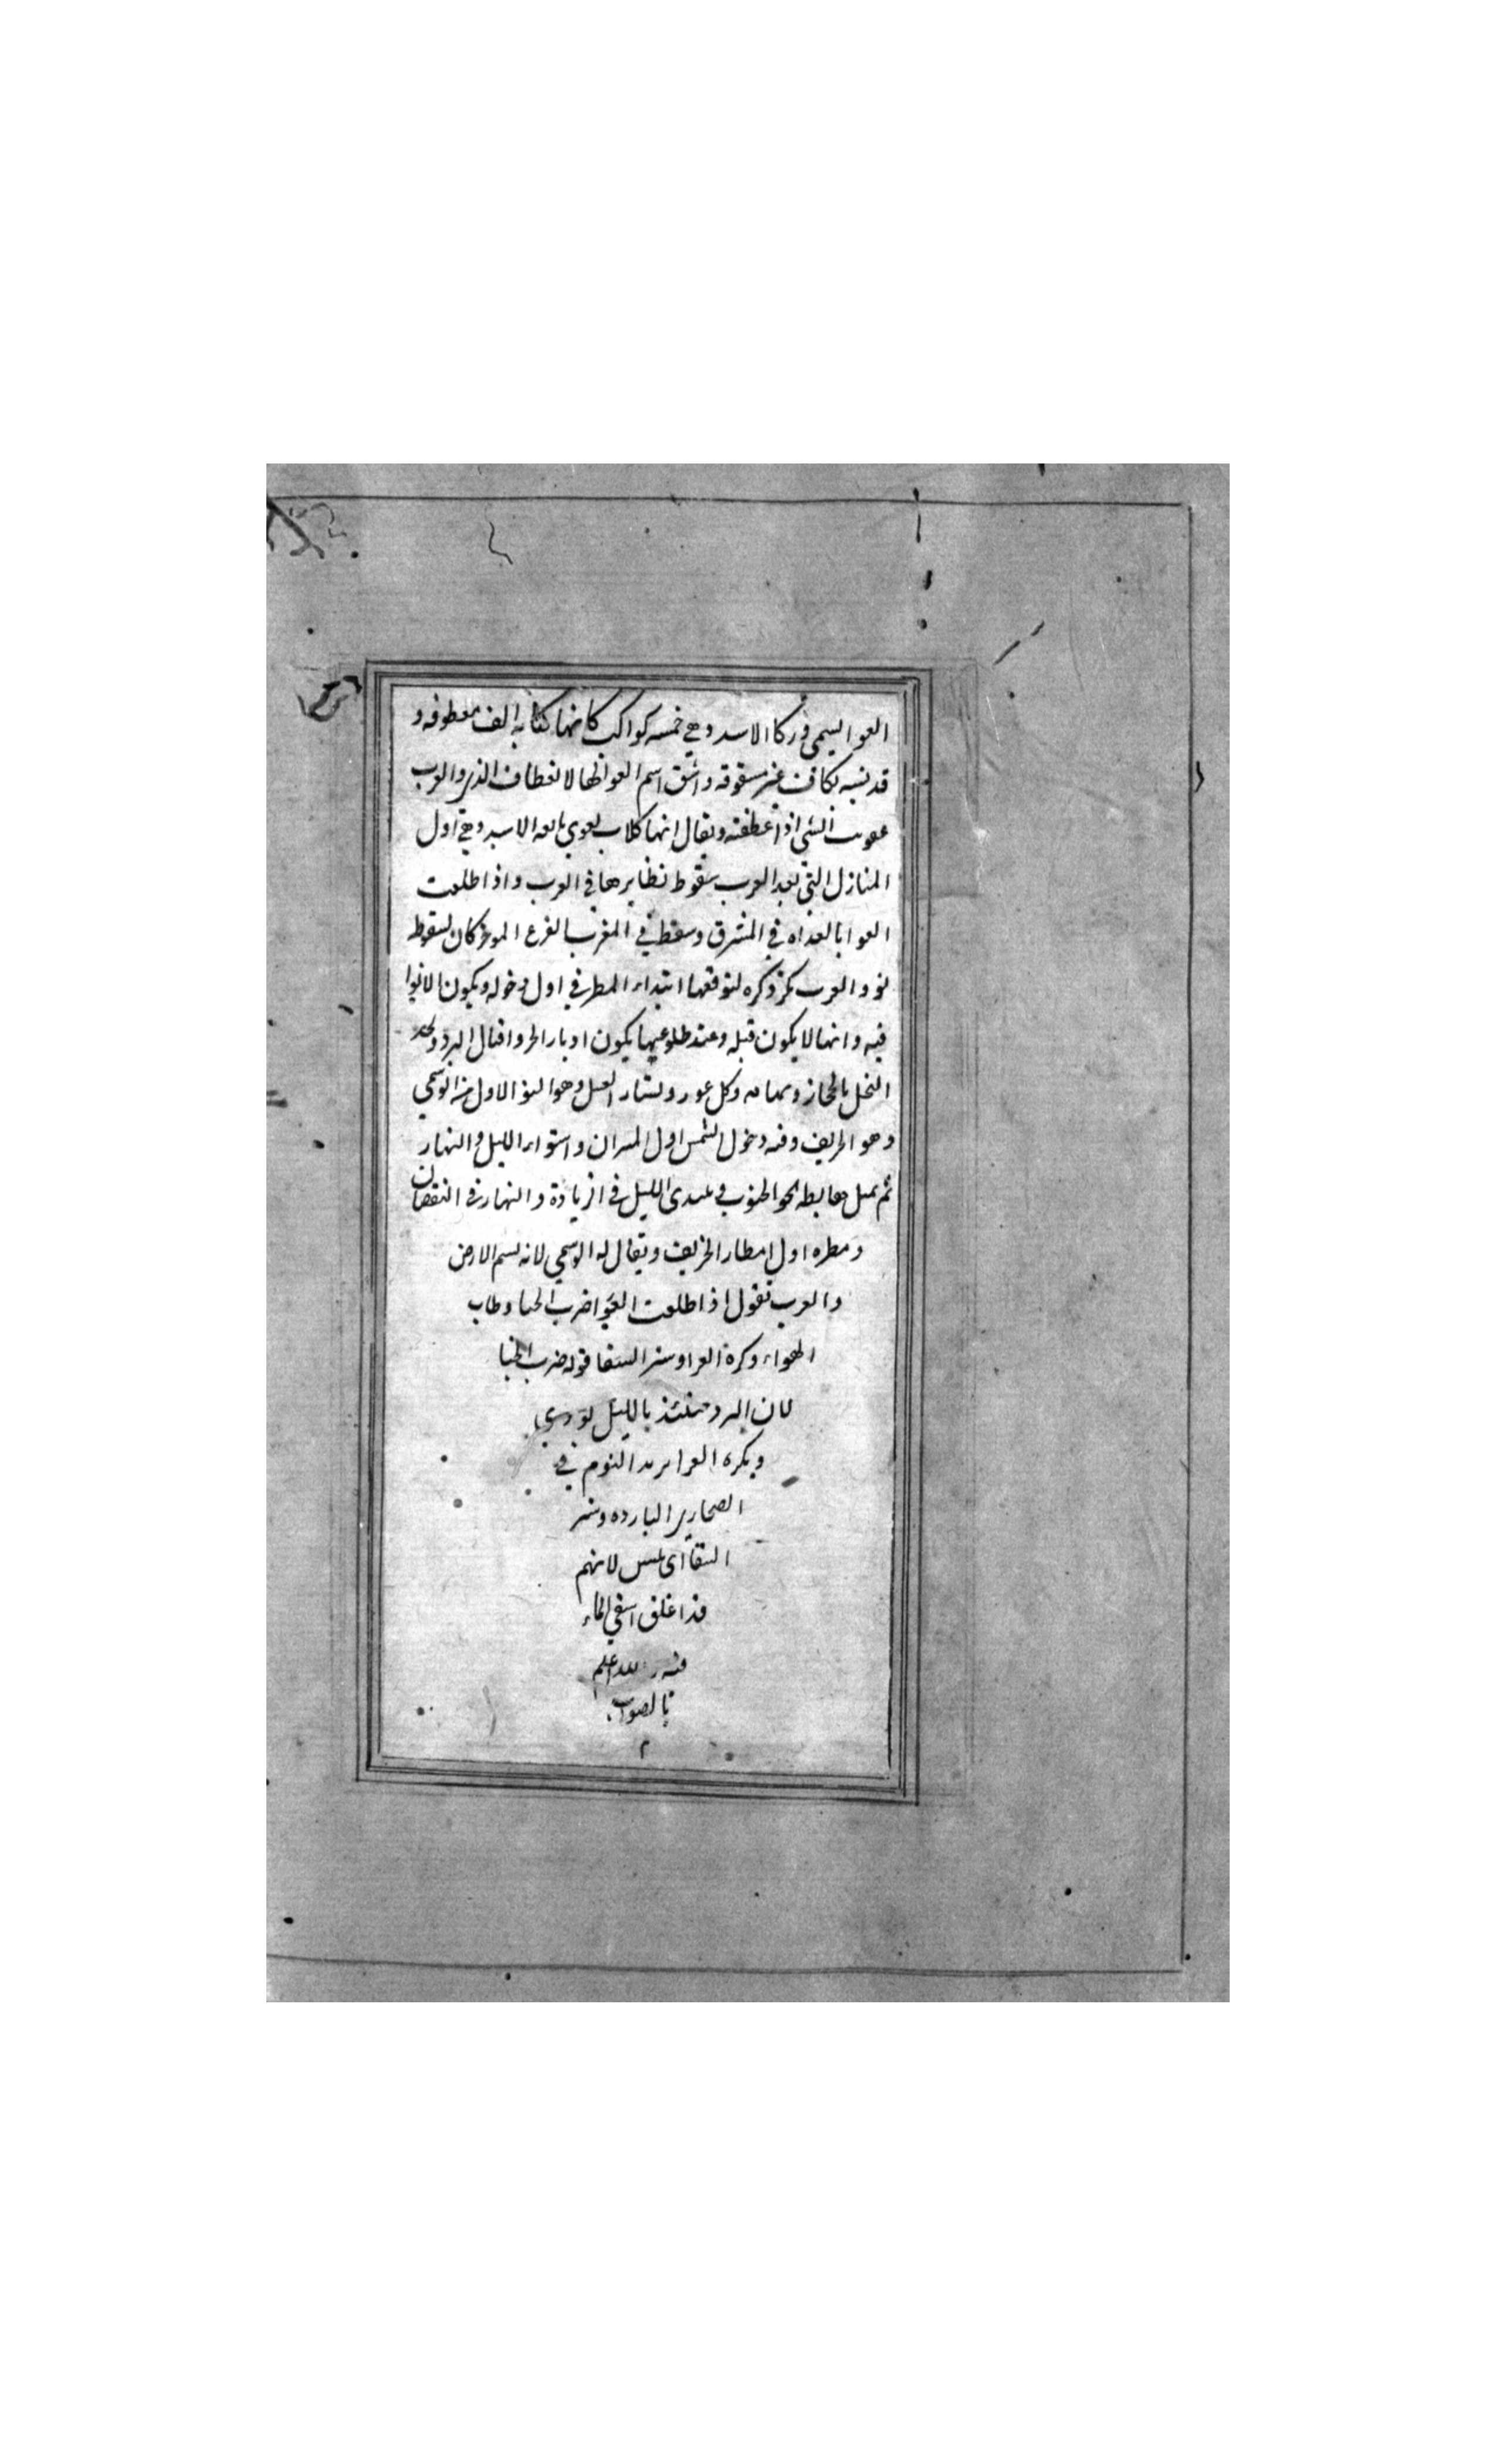 العوا يسمى وركا الاسد وهي خمسه كواكب كانها كتابه الف معطوفه و
قد يشبه بكاف غير مشقوقه واشتق اسم العوا لها لانعطاف الذي والعرب
عويت الشى اذا عطفته ويقال انها كلاب يعوي تابعه الاسد وهي اول
المنازل التي بعد العرب سقوط نظايرها في العرب واذا طلعت
العوا بالعداه في المشرق وسقط في المغرب الفرع الموخر كان لسقوطه
نوو العرب يكثر ذكره لتوقعها ابتداء المطر في اول دخوله ويكون الانوا
فيه وانها لا يكون قبله وعند طلوعها يكون ادبار الحر واقبال البرد
النخل بالحجاز وتهامه وكل غور ويشتار العسل وهو النو الاول من الوسمي
وهو الخريف وفيه دخول الشمس اول الميزان واستواء الليل والنهار
ثم يميل هابطه نحو الجنوب فيبتدى الليل في ازيادة والنهار في النقصان
ومطره اول امطار الخريف ويقال له الوسمي لانه يسم الارض
والعرب تقول اذا طلعت العوا ضرب الخبا وطاب
الهواء وكرة العرا وشنن السقا قوله ضرب الخبا
لان البرد حينئذ بالليل يوذي
ويكره العرا يريد النوم في
الصحاري البارده وشنن
السقا اى يبس لانهم
قد اغلق اسقي الماء
فيه والله اعلم
بالصواب
م